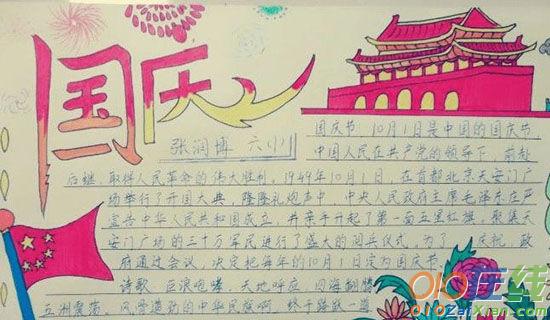 国庆
张润博 六(1)
国庆节 10月1日是中国的国庆节,
中国人民在共产党的领导下,前赴
后继,取得人民革命的伟大胜利,1949年10月1日,在首都北京天安门广
场举行了开国大典,隆隆礼炮声中,中央人民政府主席毛泽东庄严
宣告中华人民共和国成立,并亲手升起了第一面五星红旗,聚集天
安门广场的三十万军民进行了盛大的阅兵仪式,为了 庆祝,政
府通过会议 决定把每年的10月1日定为国庆节。
诗歌 巨浪咆哮,天地呼应 四海翻腾
五洲震荡,风雪造就的中华民族啊 终于踏踩一道
在线
ZaiXian.com